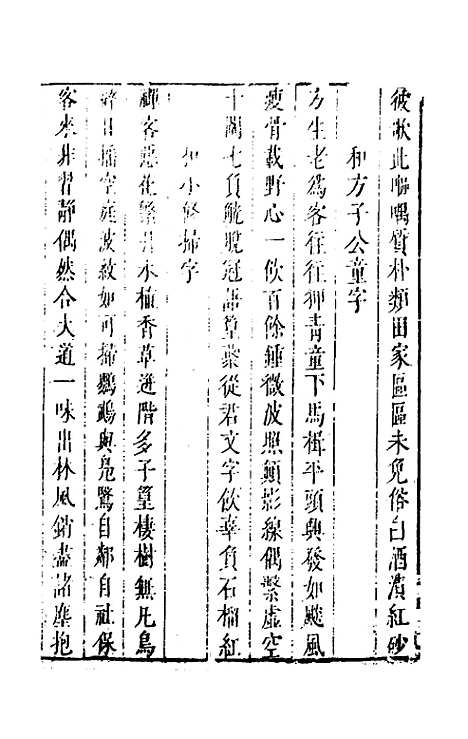 彼歌此喁喁質朴類田家區區未免俗白酒漬紅砂
和方子公童字
方生老為客往往狎青童下馬楫平頭興發如颷風
瘦骨載野心一飲百餘鍾微波照顛影線偶繫虛空
十謁七負觥墮冠語草叢從君文字飲辜負石榴紅
和小修掃字
禪客愛花繁井水植香草迸階多子篁棲樹無凡鳥
日播空庭波紋如可掃鸂鶒與鳧鷖自鄰自社保
客來非習靜偶然合大道一味出林風銷盡諸塵抱